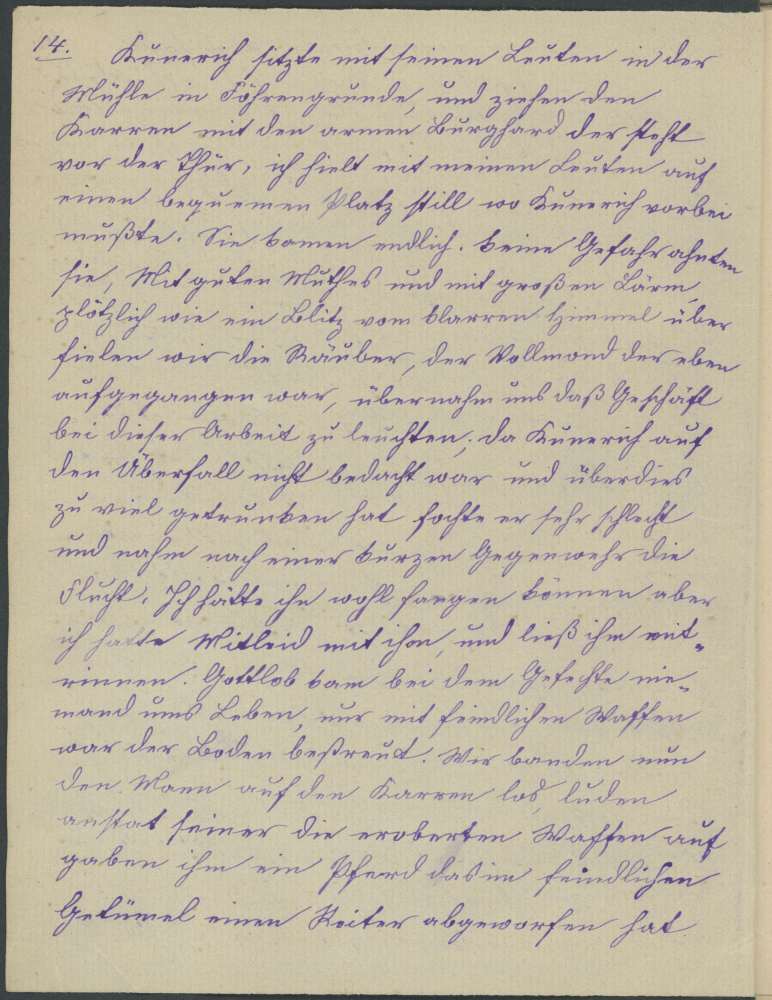 14. Kunerich sitzte mit seinen Leuten in der
Mühle in Föhrengrunde, und ziehen den
Karren mit den armen Burghard der steht
vor der Thür, ich hielt mit meinen Leuten auf
einen bequemen Platz still wo Kunerich vorbei
mußte. Sie kamen endlich. keine Gefahr ahnten
sie, Mit guten Muthes und mit großen Lärm,
plötzlich wie ein Blitz vom klarren Himmel über
fielen wir die Räuber, der Vollmond der eben
aufgegangen war, übernahm uns daß Geschäft
bei dieser Arbeit zu leuchten; da Kunerich auf
den Überfall nicht bedacht war und überdies
zu viel getrunken hat fochte er sehr schlecht
und nahm nach einer kurzen Gegenwehr die
Flucht. Ich hätte ihn wohl fangen können aber
ich hatte Mitleid mit ihm, und ließ ihm ent-
rinnen. Gottlob kam bei dem Gefechte nie-
mand ums Leben, nur mit feindlichen Waffen
war der Boden bestreut. Wir banden nun
den Mann auf den Karren los, luden
anstat seiner die eroberten Waffen auf
gaben ihm ein Pferd das im feindlichen
Getümel einen Reiter abgeworfen hat